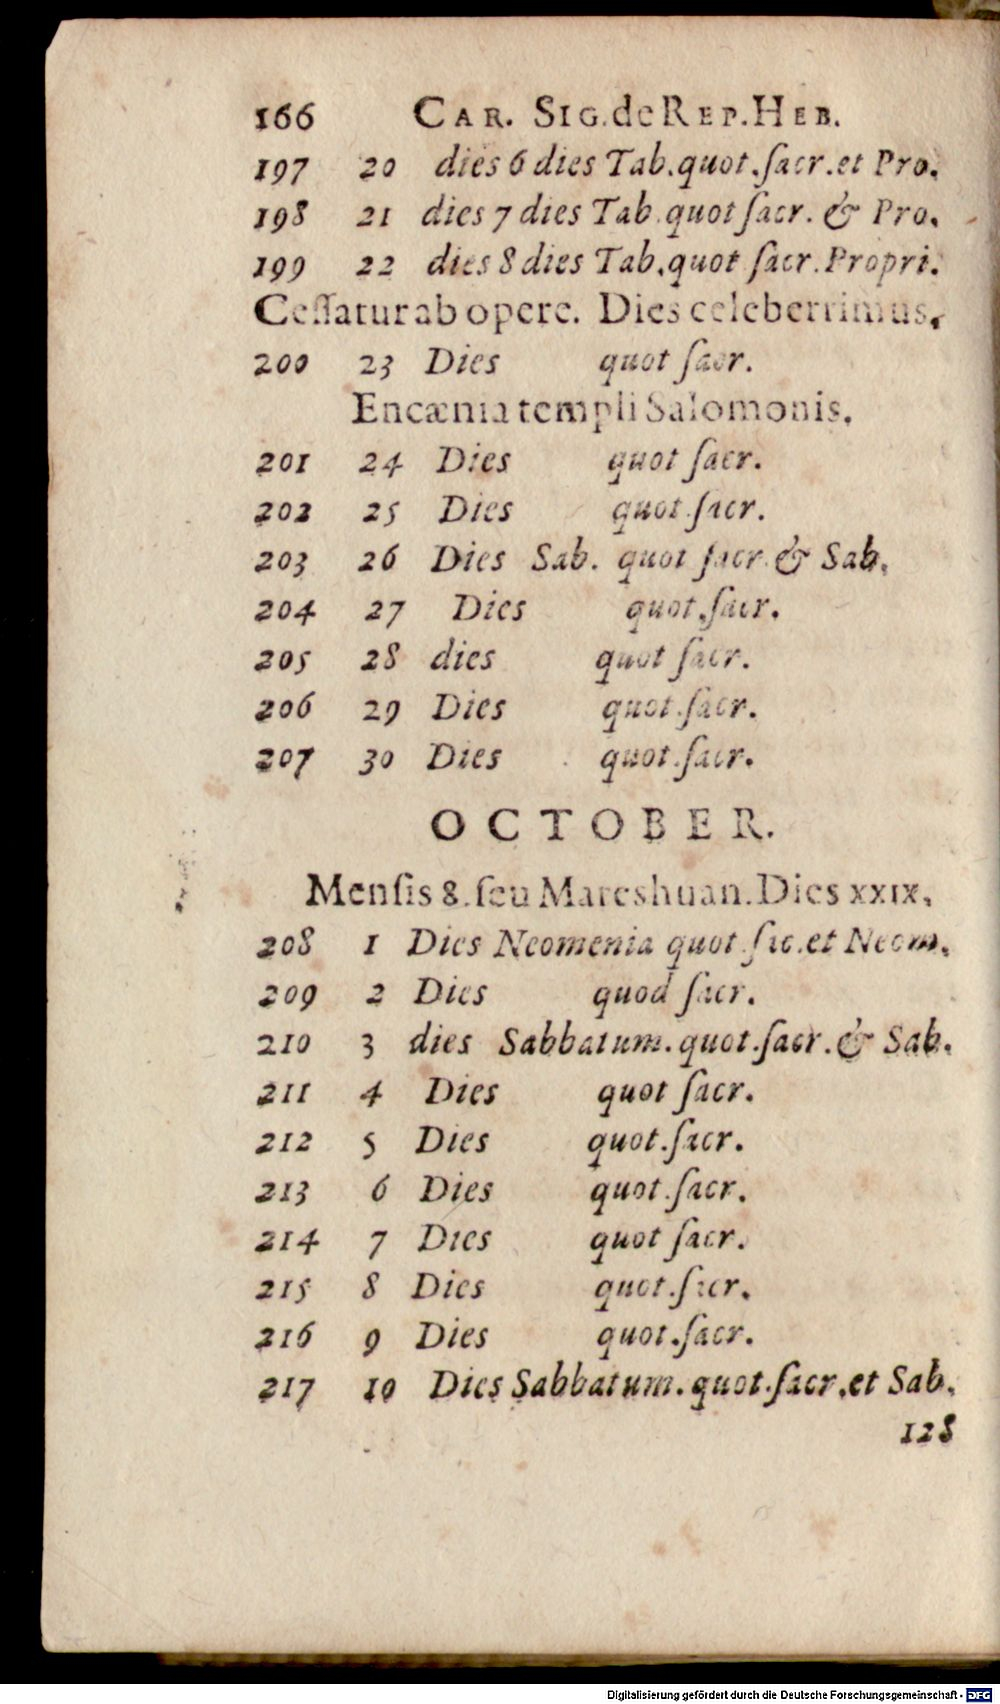 166 CAR. SIG. de REP. HEB.
197 20 dies 6 dies Tab. quot. ſacr. et Pro.
198 21 dies 7 dies Tab. quot ſacr. & Pro.
199 22 dies 8 dies Tab. quot ſacr. Propri.
Ceſſatur ab opere. Dies celeberrimus.
200 23 Dies quot ſacr.
Encænia templi Salomonis.
201 24 Dies quot ſacr.
202 25 Dies quot ſacr.
203 26 Dies Sab. quot ſacr & Sab.
204 27 Dies quot. ſacr.
205 28 dies quot ſacr.
206 29 Dies quot. ſacr.
207 30 Dies quot. ſacr.
OCTOBER.
Menſis 8. ſeu Mareshuan. Dies xxix.
208 1 Dies Neomenia quot ſac. et Neom.
209 2 Dies quod ſacr.
210 3 dies Sabbatum. quot. ſacr. & Sab.
211 4 Dies quot ſacr.
212 5 Dies quot. ſacr.
213 6 Dies quot. ſacr.
214 7 Dies quot ſacr.
215 8 Dies quot. ſacr.
216 9 Dies quot. ſacr.
217 10 Dies Sabbatum. quot. ſacr. et Sab.
128
Digitalisierung gefördert durch die Deutsche Forschungsgemeinschaft - DFG